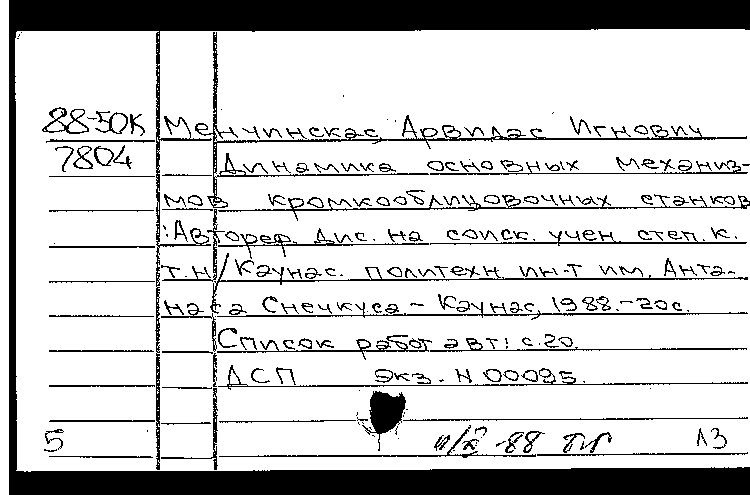 88-50К Менчинскас, Арвидас Игнович
7804 Динамика основных механиз-
мов кромкооблицовочных станков
: Автореф. дис. на соиск. учен. степ. к.
т.н / Каунас. политехн. ин-т им. Анта-
наса Снечкуса. - Каунас, 1988. - 20 с.
Список работ авт: с. 20.
ДСП Экз. N 00095.
5 88 ЛЗ